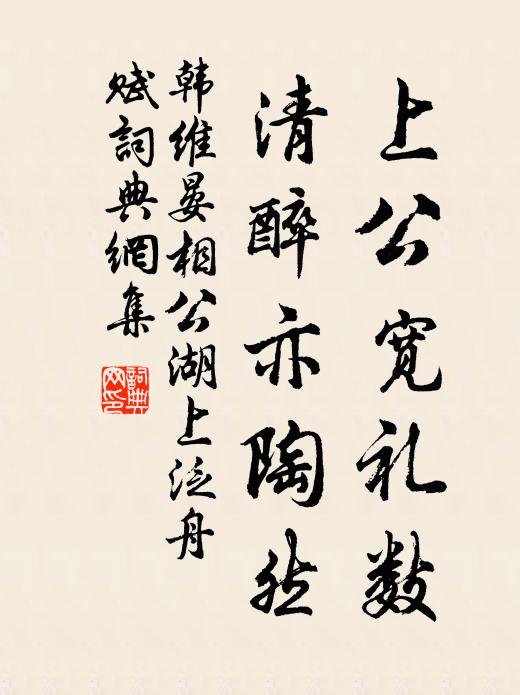 上公宽礼数
清醉亦陶然
韩维晏相公湖上泛舟
赋詞典網集
詞典网印